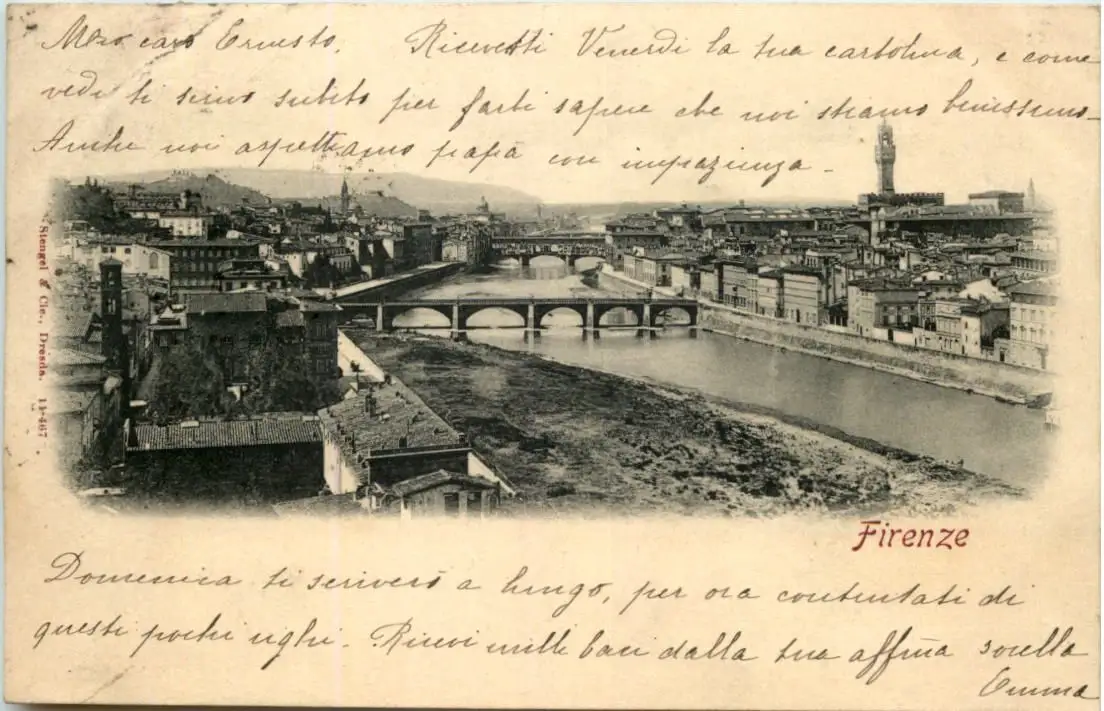 Mio caro Ernesto. Ricevetti Venerdì la tua cartolina, e come
vedi ti scrivo subito per farti sapere che noi stiamo benissimo_
Anche noi aspettiamo papà con impazienza_
Stengel & Cie., Dresda. 11467
Firenze
Domenica ti scriverò a lungo, per ora contentati di
questi pochi righi. Ricevi mille baci dalla tua affma sorella
Emma